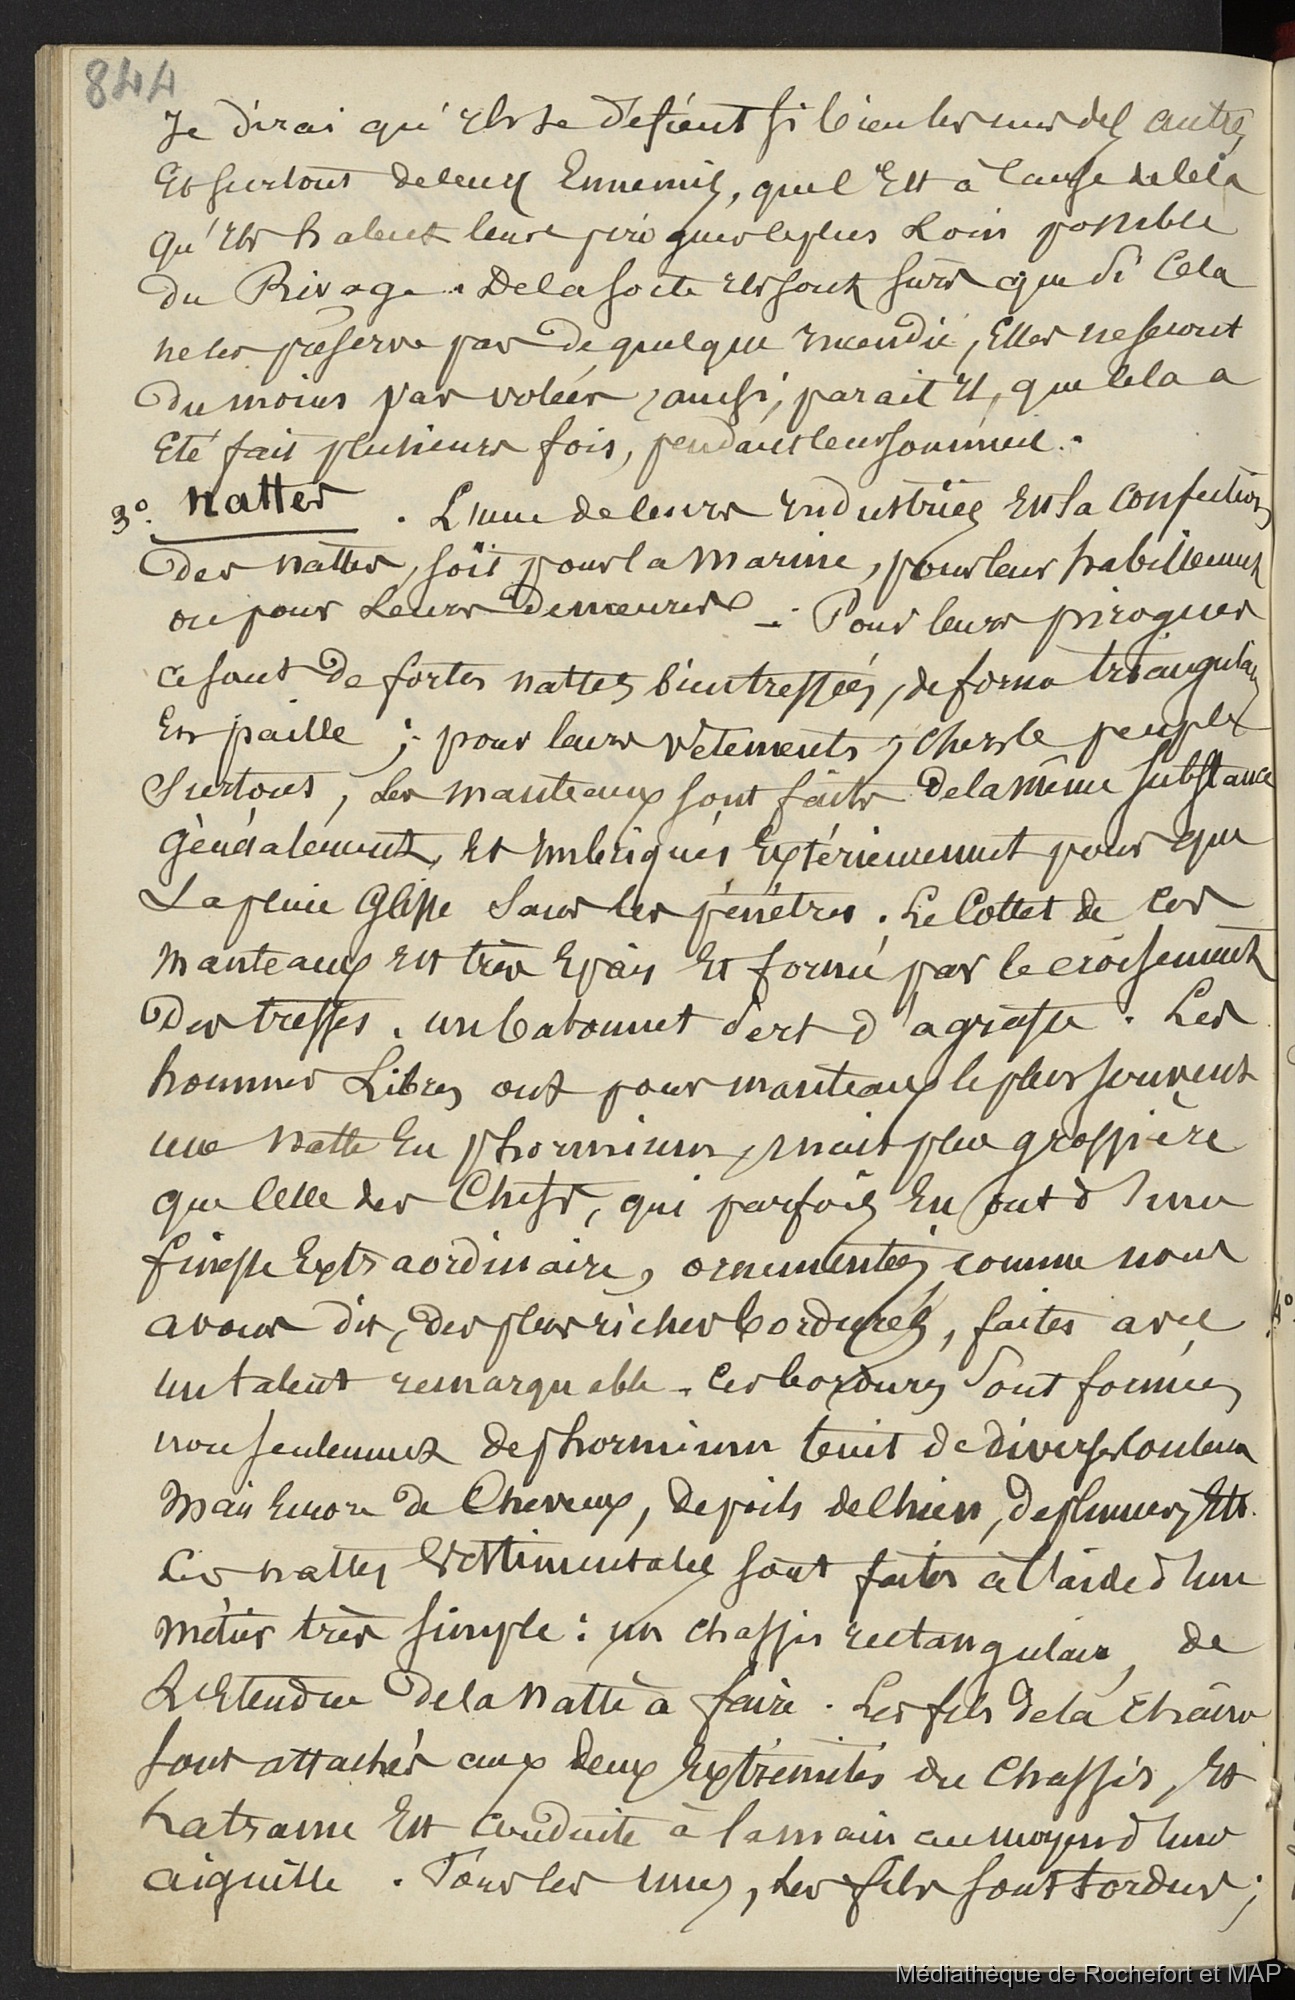 844
Je dirai qu'ils se défient si bien les uns des autres
Et surtout de leurs Ennemis, que c'Est à Cause de cela
qu'ils halent leurs pirogues le plus Loin possible
du Rivage. De la sorte ils sont sûrs que si Cela
ne les préserve pas de quelque incendie, Elles ne seront
du moins pas volées, ainsi, parait il, que cela a
Eté fait plusieurs fois, pendant leur sommeil.
3°. Nattes. L'une de leurs industries Est la Confection
des nattes, soit pour la Marine, pour leur habillement
ou pour Leurs Demeures. Pour leurs pirogues
ce sont de fortes nattes bien tressées, de forme triangulaire
En paille ; pour leurs vêtements, chez le peuple
Surtout, Les manteaux sont faits de la même substance
Généralement, Et imbriqués Extérieurement pour que
La pluie Glisse Sans les pénétrer. Le Collet de Ces
Manteaux Est très Epais Et formé par le croisement
Des tresses. un batonnet sert d'agraffe. Les
hommes Libres ont pour manteau le plus souvent
une natte En phormium, mais plus grossière
que Celle des Chefs, qui parfois En ont d'une
finesse Extraordinaire, ornementées, comme nous
avons dit, des plus riches bordures, faites avec
un talent remarquable. Ces bordures sont formées
non seulement de phormium teint de diverses couleurs
Mais Encore de Cheveux, de poils de Chien, de plumes, Etc.
Ces nattes Vestimentales sont faites à l'aide d'un
métier très simple : un chassis rectangulaire, de
L'Etendue de la Natte à faire. Les fils de la chaine
sont attachés aux deux Extrémités du Chassis, Et
La trame Est Conduite à la main au moyen d'une
aiguille. Pour les unes, Les fils sont tordus ;
4°
Médiathèque de Rochefort et MAP